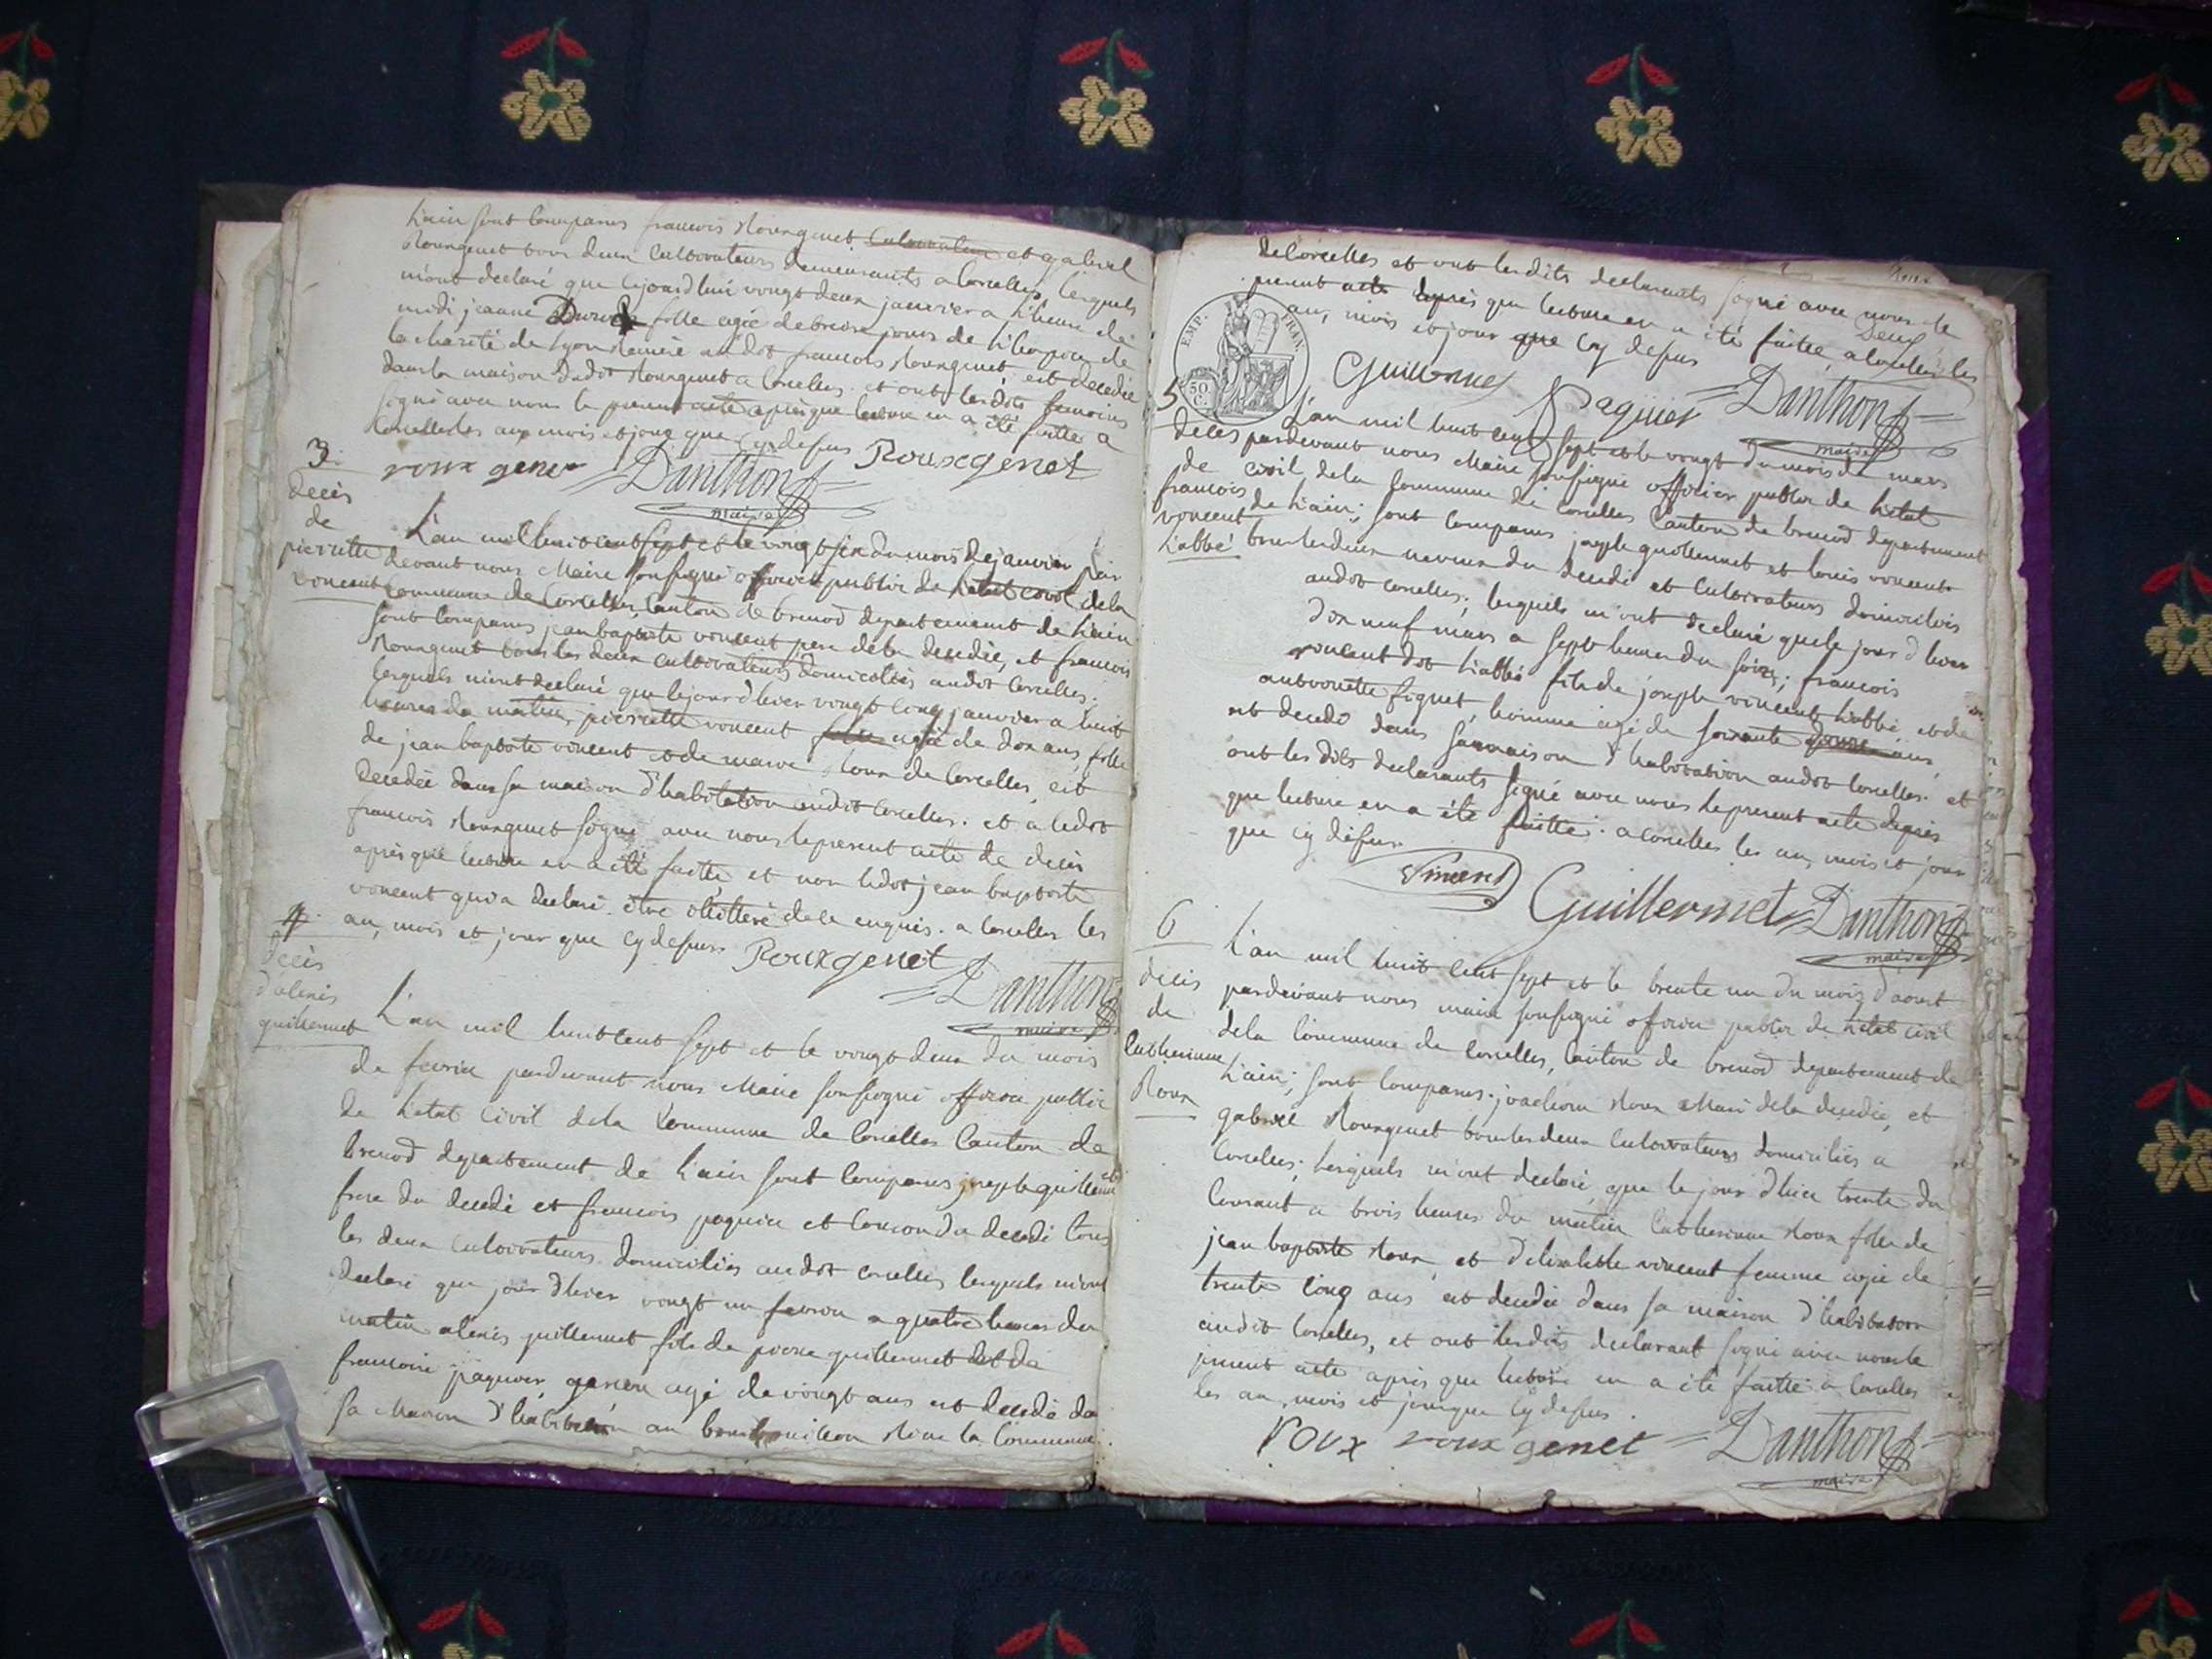 l'ain sont comparus francois Rouxgenet cultivateur et gabriel
Rouxgenet tous deux cultivateurs demeurants a corcelles, lesquels
m'ont declaré que cejourd'hui vingt deux janvier a l'heure de
midi jeanne fille agée de treize jours de l'hospice de
la charité de lyon audit francois Rouxgenet, est decedée
dans la maison dudit Rouxgenet a corcelles. et ont lesdits temoins
signé avec nous le present acte apres que lecture en a été faitte a
corcelles les an mois et jour que cy dessus Rouxgenet
roux genet Danthon
maire
3.
decès
de
pierrette
vincent
L'an mil huit cent sept et le vingt six du mois de janvier par
devant nous Maire soussigné officier public de l'état civil de la
commune de Corcelles, Canton de brenod departement de l'ain
sont comparus jean baptiste vincent pere de la decedée, et francois
Rouxgenet tous les deux cultivateurs domiciliés audit Corcelles.
lesquels m'ont declaré que le jour d'hier vingt cinq janvier a huit
heures du matin, pierrette vincent fille agée de dix ans, fille
de jean baptiste vincent et de marie Roux de Corcelles, est
decedée dans sa maison d'habitation audit Corcelles. et a ledit
francois Rouxgenet signé avec nous le present acte de decès
après que lecture en a été faitte, et non ledit jean baptiste
vincent qui a declaré être illitteré de ce enquis. a Corcelles les
an, mois et jour que cy dessus Rouxgenet
Danthon
maire
4.
decès
d'alexis
guillermet
L'an mil huit cent sept et le vingt deux du mois
de fevrier pardevant nous Maire soussigné officier public
de l'etat Civil de la Commune de Corcelles Canton de
brenod departement de l'ain sont comparus joseph guillermet
frere du decedé et francois paquier et cousin du decedé tous
les deux cultivateurs domiciliés audit corcelles lesquels m'ont
declaré que jour d'hier vingt un fevrier a quatre heures du
matin alexis guillermet fils de pierre guillermet et de
francoise paquier, garcon agé de vingt ans est decedé da
sa Maison d'habitation au la Commune
de Corcelles et ont lesdits declarants signé avec nous le
present acte après que lecture en a été faitte, a corcelles les
an, mois et jour que cy dessus
EMP. FRAN.
50 C.
Guillermet Paquier Danthon
maire
5
decès
de
francois
vincent
l'abbé
L'an mil huit cent sept et le vingt du mois de mars
pardevant nous Maire soussigné officier public de l'état
civil de la commune de Corcelles Canton de brenod departement
de l'ain; sont comparus joseph guillermet et louis vincent
tous les deux neveux du decedé et cultivateurs domiciliés
audit corcelles; lesquels m'ont declaré que le jour d'hier
dix neuf mars a sept heures du soir; francois
vincent dit l'abbé fils de joseph vincent l'abbé, et de
antoinette figuet, homme agé de soixante ans,
est decedé dans sa maison d'habitation audit corcelles. et
ont lesdits declarants signé avec nous le present acte depuis
que lecture en a été faitte. a corcelles les an, mois et jour
que cy dessus
Vincent Guillermet Danthon
maire
6
decès
de
Catherinne
Roux
L'an mil huit cent sept et le trente un du mois d'aoust
pardevant nous maire soussigné officier public de l'etat civil
de la Commune de Corcelles, Canton de brenod departement de
l'ain; sont comparus. joachim Roux Mari de la decedée, et
gabriel Rouxgenet tous les deux cultivateurs domiciliés a
Corcelles; lesquels m'ont declaré, que le jour d'hier trente du
Courant a trois heures du matin Catherinne Roux fille de
jean baptiste Roux, et d'elisabeth vincent femme agée de
trente cinq ans est decedée dans sa maison d'habitation
audit Corcelles, et ont lesdits declarant signé avec nous le
present acte après que lecture en a été faitte a Corcelles
les an, mois et jour que cy dessus.
roux roux genet Danthon
maire